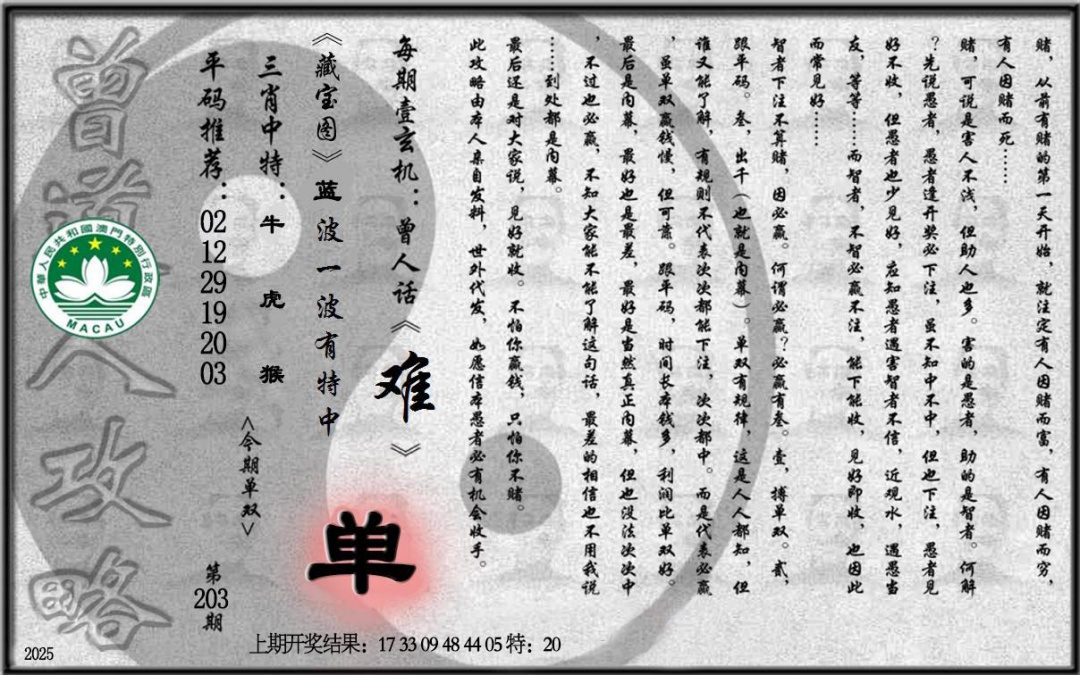 赌，从前有赌的第一天开始，就注定有人因赌而富，有人因赌而穷，
有人因赌而死……
赌，可说是害人不浅，但助人也多。害的是愚者，助的是智者。何解
？先说愚者，愚者逢开奖必下注，虽不知中不中，但也下注，愚者见
好不收，但愚者也少见好，应知愚者遇害智者不信，近观水，遇愚当
友，等等……而智者，不智必赢不注，能下能收，见好即收，也因此
而常见好……
智者下注不算赌，因必赢。何谓必赢？必赢有叁。壹，搏单双。贰，
跟平码。叁，出千（也就是内幕）。单双有规律，这是人人都知，但
谁又能了解，有规则不代表次次都能下注，次次都中。而是代表必赢
，虽单双赢钱慢，但可靠。跟平码，时间长本钱多，利润比单双好。
最后是内幕，最好也是最差，最好是当然真正内幕，但也没法次次中
，不过也必赢，不知大家能不能了解这句话，最差的相信也不用我说
……到处都是内幕。
最后还是对大家说，见好就收。不怕你赢钱，只怕你不赌。
此攻略由本人亲自发料，世外代发，如愿信本愚者必有机会收手。
每期壹玄机：曾人话《难》
《藏宝图》蓝波一波有特中
单
三肖中特：牛 虎 猴
<今期单双>
平码推荐：02 12 29 19 20 03
第203期
曾道人攻略
中華人民共和國澳門特別行政區
MACAU
2025
上期开奖结果：17 33 09 48 44 05 特：20